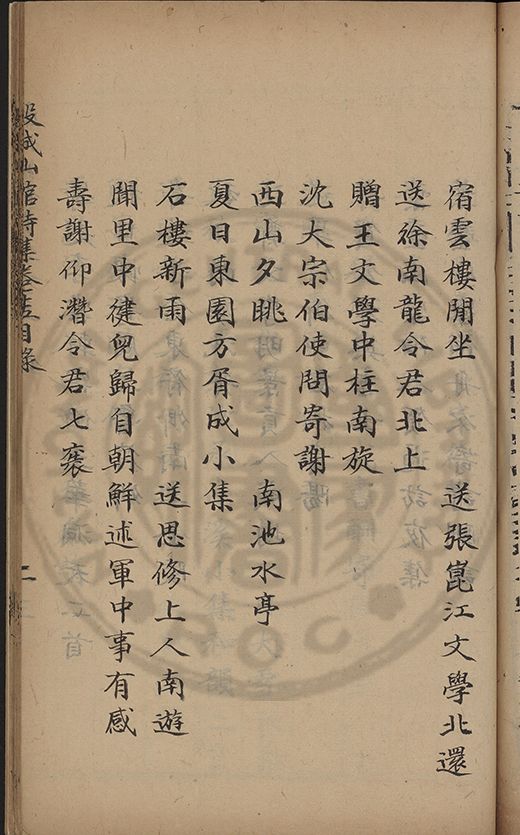 宿雲樓閒坐　送張崑江文學北還
送徐南龍令君北上
贈王文學中柱南旋
沈大宗伯使問寄謝
西山夕眺　南池水亭
夏日東園方胥成小集
石樓新雨　送思修上人南遊
聞里中健兒歸自朝鮮述軍中事有感
壽謝仰潛令君七袠
城山館詩集卷五目錄
二